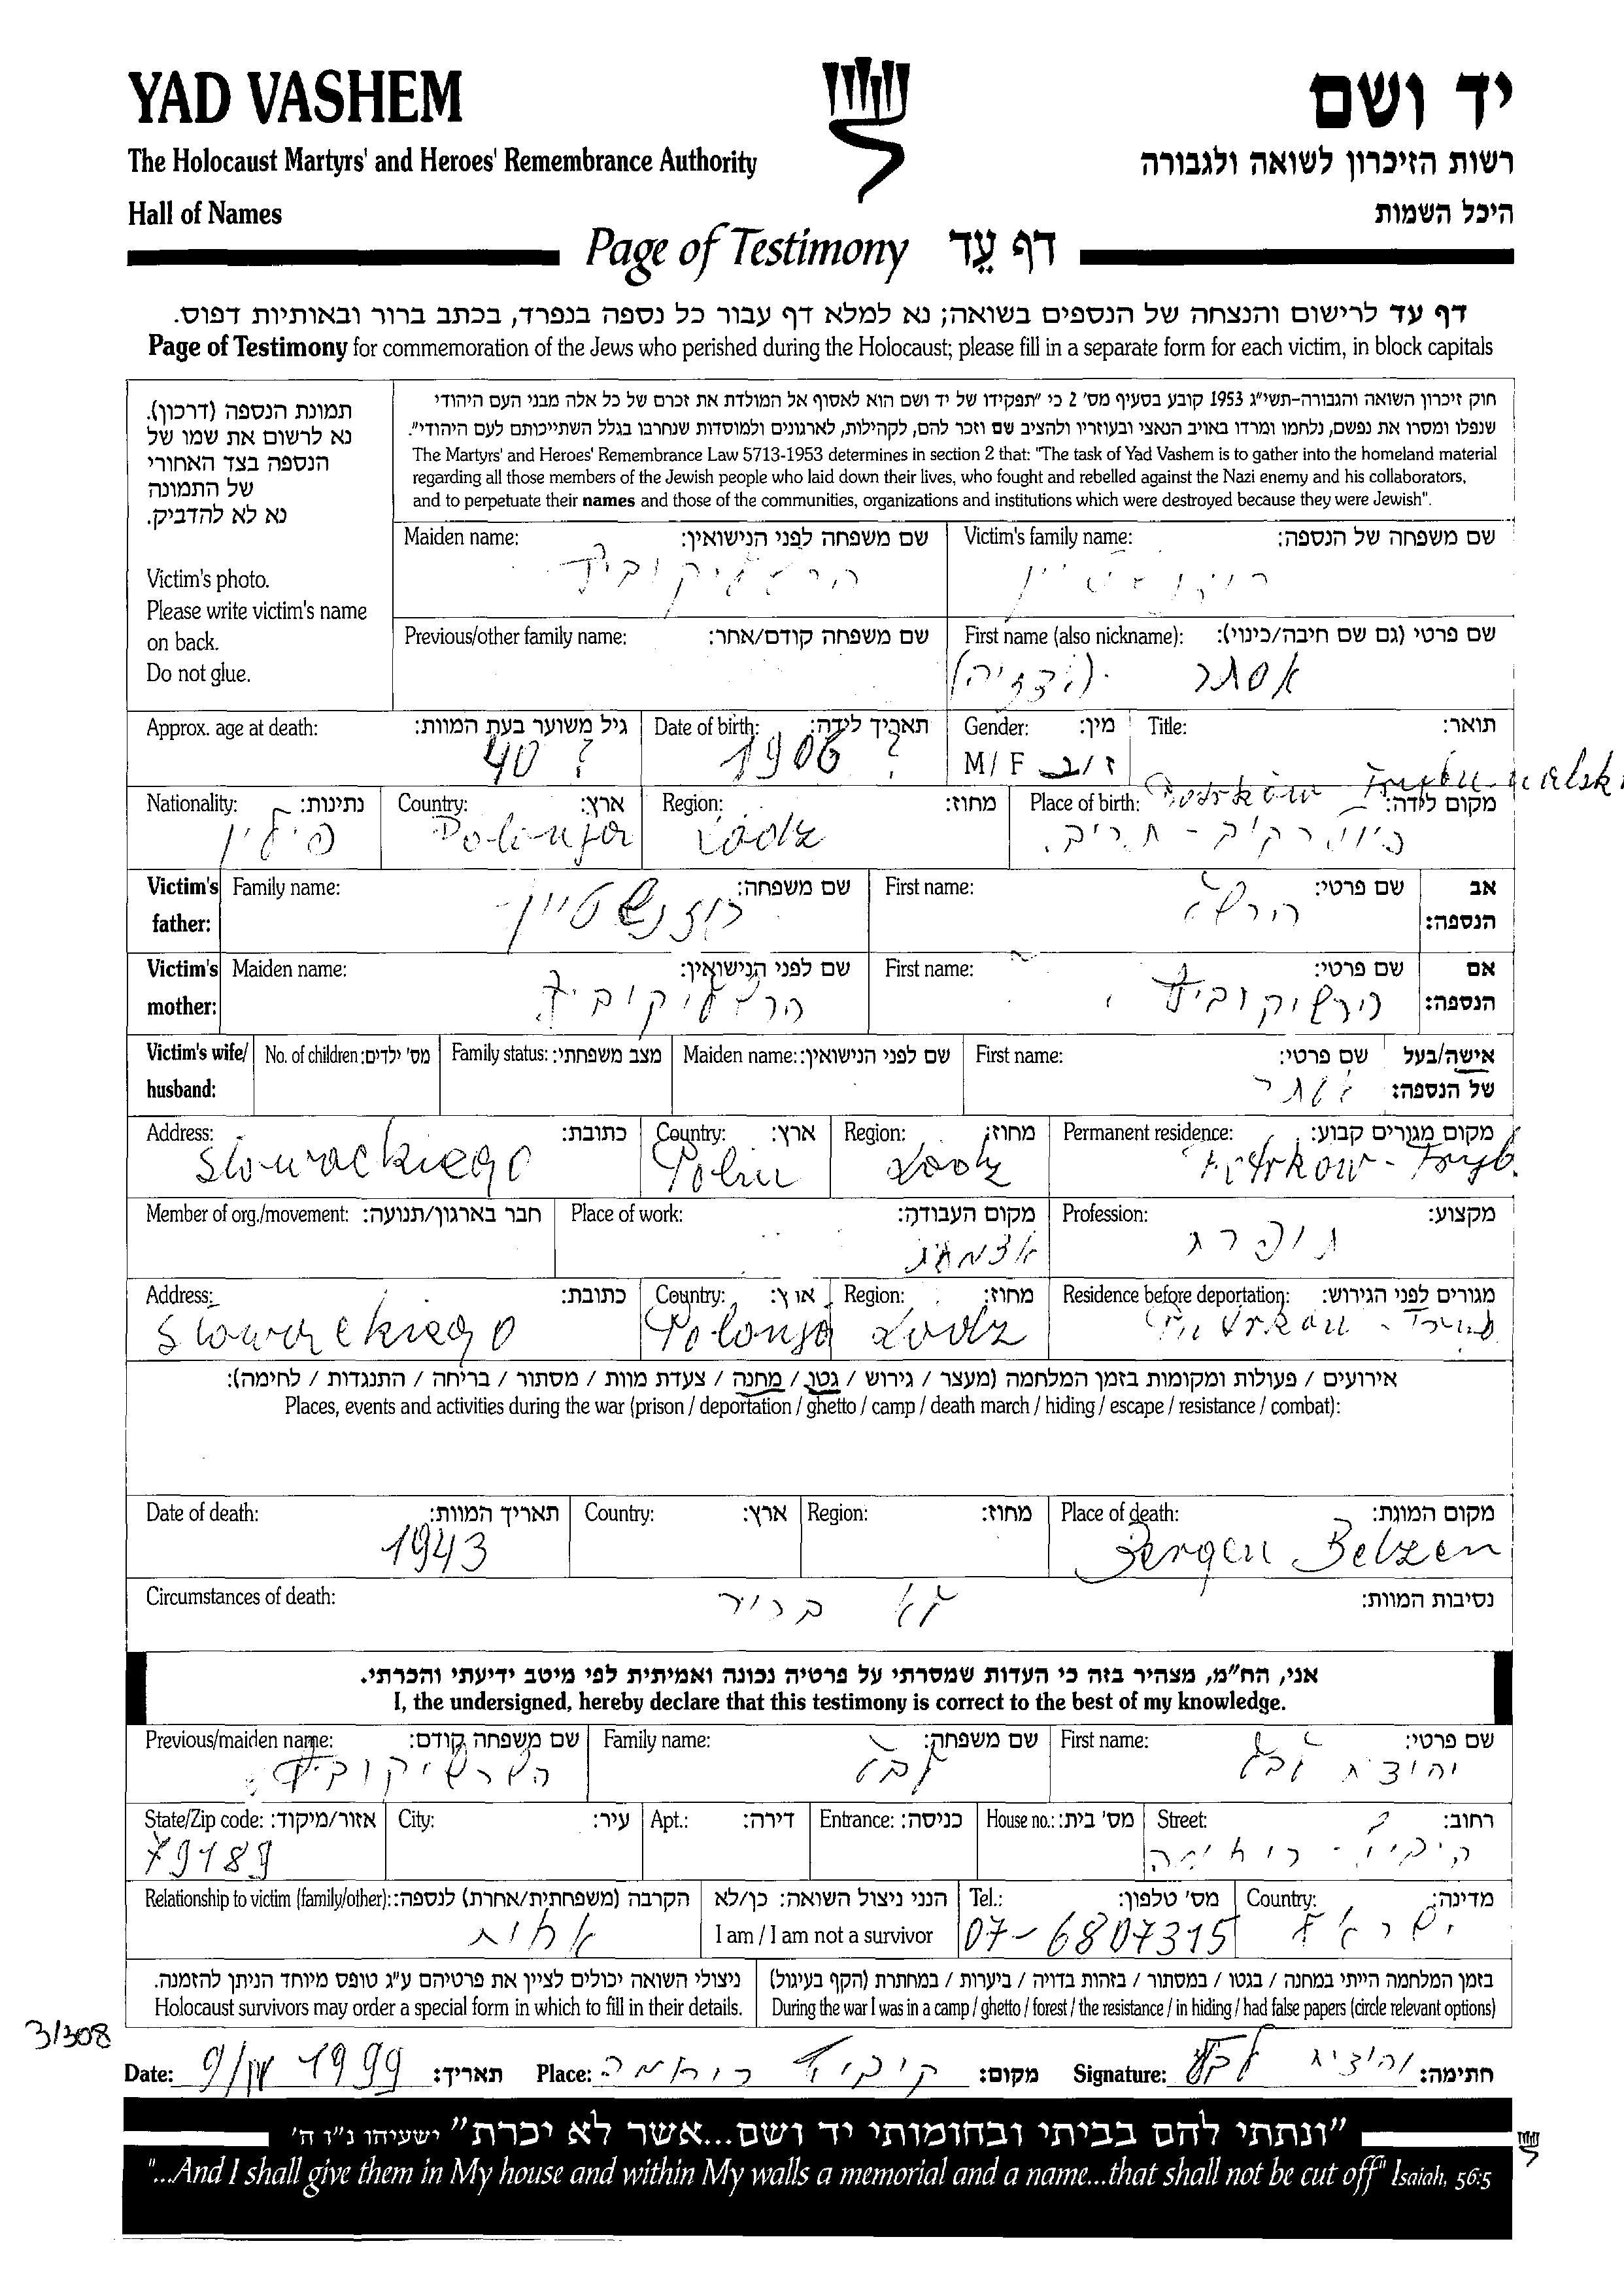 YAD VASHEM
יד ושם
The Holocaust Martyrs' and Heroes' Remembrance Authority
רשות הזיכרון לשואה ולגבורה
Hall of Names
היכל השמות
Page of Testimony דף עֵד
דף עד לרישום והנצחה של הנספים בשואה; נא למלא דף עבור כל נספה בנפרד, בכתב ברור ובאותיות דפוס.
Page of Testimony for commemoration of the Jews who perished during the Holocaust; please fill in a separate form for each victim, in block capitals
תמונת הנספה (דרכון).
נא לרשום את שמו של
הנספה בצד האחורי
של התמונה
נא לא להדביק.
Victim's photo.
Please write victim's name
on back.
Do not glue.
חוק זיכרון השואה והגבורה-תשי"ג 1953 קובע בסעיף מס' 2 כי "תפקידו של יד ושם הוא לאסוף אל המולדת את זכרם של כל אלה מבני העם היהודי
שנפלו ומסרו את נפשם, נלחמו ומרדו באויב הנאצי ובעוזריו ולהציב שם וזכר להם, לקהילות, לארגונים ולמוסדות שנחרבו בגלל השתייכותם לעם היהודי".
The Martyrs' and Heroes' Remembrance Law 5713-1953 determines in section 2 that: "The task of Yad Vashem is to gather into the homeland material
regarding all those members of the Jewish people who laid down their lives, who fought and rebelled against the Nazi enemy and his collaborators,
and to perpetuate their names and those of the communities, organizations and institutions which were destroyed because they were Jewish".
Maiden name: שם משפחה לפני הנישואין:
Victim's family name: שם משפחה של הנספה:
הרשליקוביץ
Previous/other family name: שם משפחה קודם/אחר:
First name (also nickname): שם פרטי (גם שם חיבה/כינוי):
אסתר
Approx. age at death: גיל משוער בעת המוות:
40 ?
Date of birth: תאריך לידה:
1906 ?
Gender: מין:
M/F ז/נ
Title: תואר:
Nationality: נתינות:
פולין
Country: ארץ:
Polonja
Region: מחוז:
Lodz
Place of birth: מקום לידה:
Piotrków Trybunalski
פיוטרקוב - טריב.
Victim's father:
Family name: שם משפחה:
רוזנשטיין
First name: שם פרטי:
הרשל
אב הנספה:
Victim's mother:
Maiden name: שם לפני הנישואין:
הרשליקוביץ
First name: שם פרטי:
הרשליקוביץ
אם הנספה:
Victim's wife/ husband:
No. of children: מס' ילדים:
Family status: מצב משפחתי:
Maiden name: שם לפני הנישואין:
First name: שם פרטי:
אישה/בעל של הנספה:
Address: כתובת:
Slowackiego
Country: ארץ:
Polin
Region: מחוז:
Lodz
Permanent residence: מקום מגורים קבוע:
Piotrkow - Tryb.
Member of org./movement: חבר בארגון/תנועה:
Place of work: מקום העבודה:
Profession: מקצוע:
תופרת
Address: כתובת:
Slowackiego
Country: ארץ:
Polonja
Region: מחוז:
Lodz
Residence before deportation: מגורים לפני הגירוש:
Piotrkow - Tryb
אירועים / פעולות ומקומות בזמן המלחמה (מעצר / גירוש / גטו / מחנה / צעדת מוות / מסתור / בריחה / התנגדות / לחימה):
Places, events and activities during the war (prison / deportation / ghetto / camp / death march / hiding / escape / resistance / combat):
Date of death: תאריך המוות:
1943
Country: ארץ:
Region: מחוז:
Place of death: מקום המוות:
Bergen Belzen
Circumstances of death: נסיבות המוות:
לא ברור
אני, הח"מ, מצהיר בזה כי העדות שמסרתי על פרטיה נכונה ואמיתית לפי מיטב ידיעתי והכרתי.
I, the undersigned, hereby declare that this testimony is correct to the best of my knowledge.
Previous/maiden name: שם משפחה קודם:
הרשליקוביץ
Family name: שם משפחה:
First name: שם פרטי:
יהודית
State/Zip code: אזור/מיקוד:
79189
City: עיר:
Apt.: דירה:
Entrance: כניסה:
House no.: מס' בית:
Street: רחוב:
קיבוץ - רוחמה
Relationship to victim (family/other): הקרבה (משפחתית/אחרת) לנספה:
אחות
הנני ניצול השואה: כן/לא
I am / I am not a survivor
Tel.: מס' טלפון:
07-6807315
Country: מדינה:
ישראל
ניצולי השואה יכולים לציין את פרטיהם ע"ג טופס מיוחד הניתן להזמנה.
Holocaust survivors may order a special form in which to fill in their details.
בזמן המלחמה הייתי במחנה / בגטו / במסתור / בזהות בדויה / ביערות / במחתרת (הקף בעיגול)
During the war I was in a camp / ghetto / forest / the resistance / in hiding / had false papers (circle relevant options)
3/308
Date: 9/IV 1999 תאריך:
Place: קיבוץ רוחמה מקום:
Signature: יהודית חתימה:
"ונתתי להם בביתי ובחומותי יד ושם...אשר לא יכרת" ישעיהו נ"ו ה'
"...And I shall give them in My house and within My walls a memorial and a name...that shall not be cut off" Isaiah, 56:5